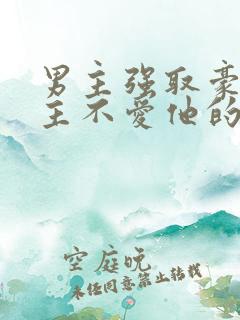 男主强取豪
主不爱他的
空庭晚
未经同意禁止转载